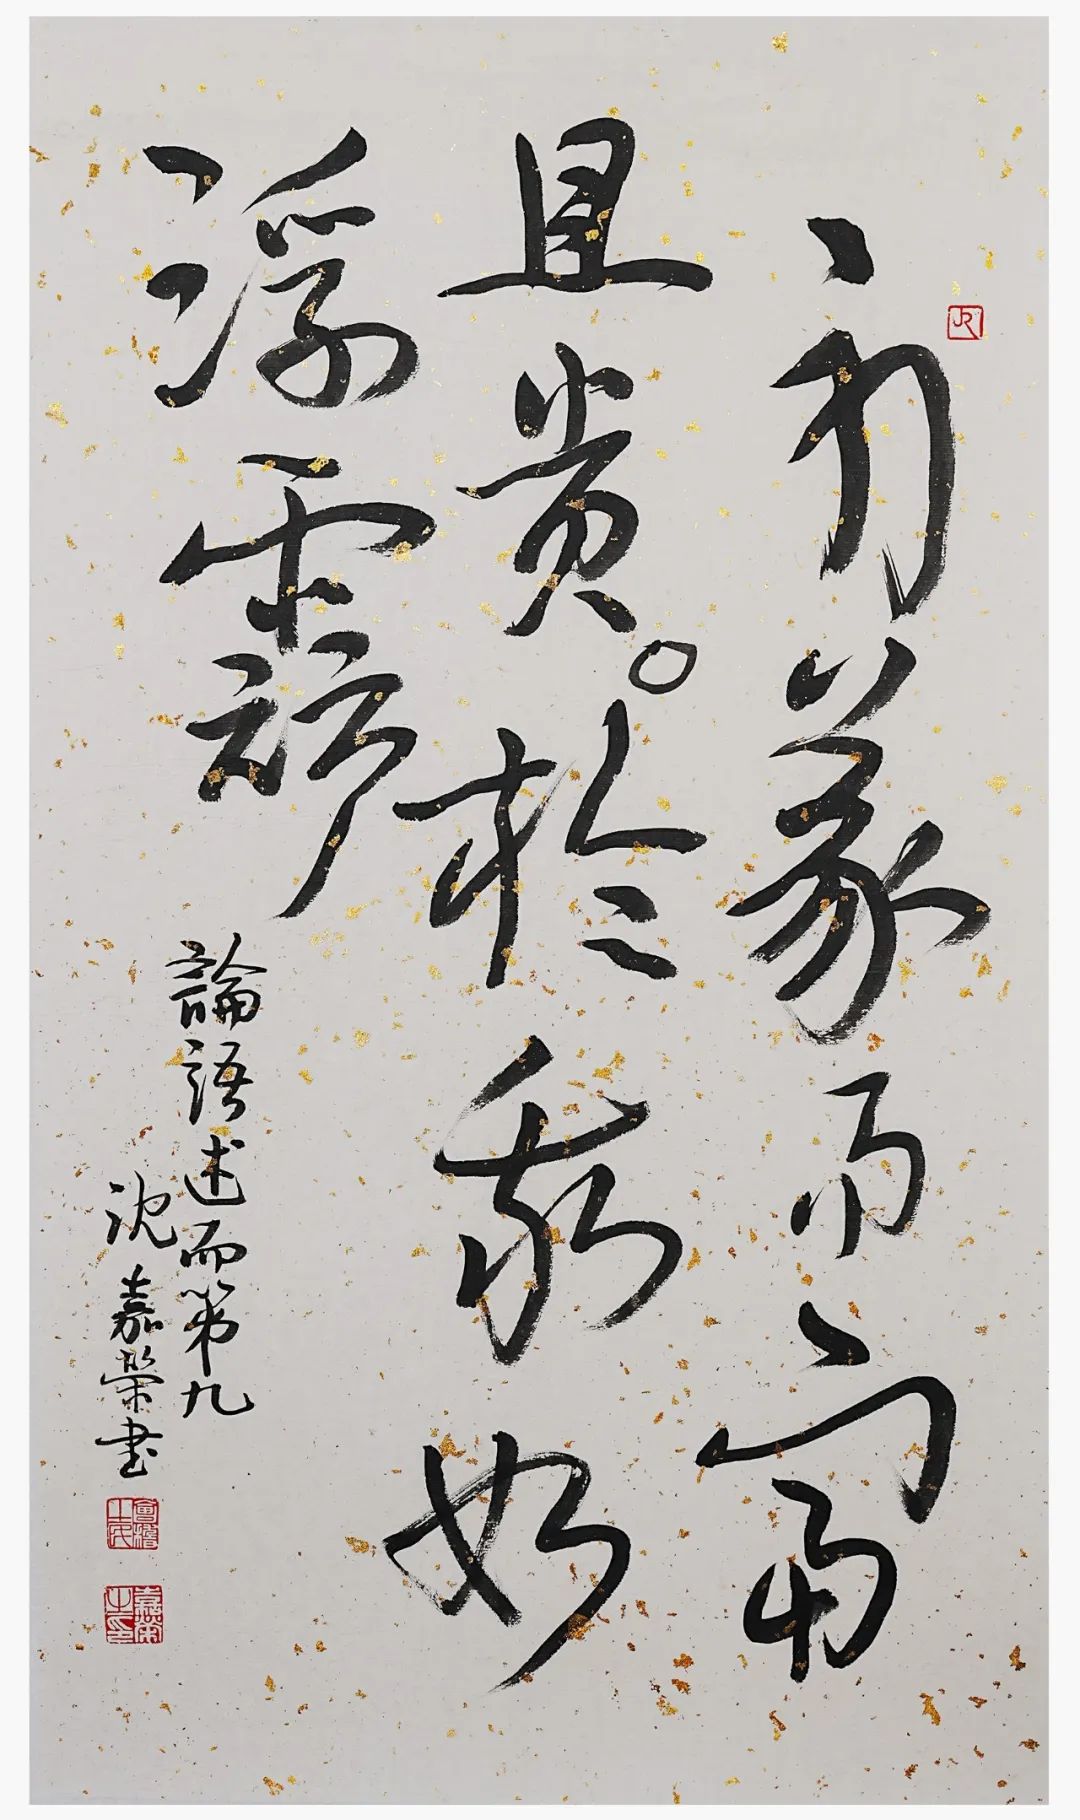 不義而富
且貴。於我如
浮雲
論語述而第九
沈嘉榮書
JR
嘉榮之印